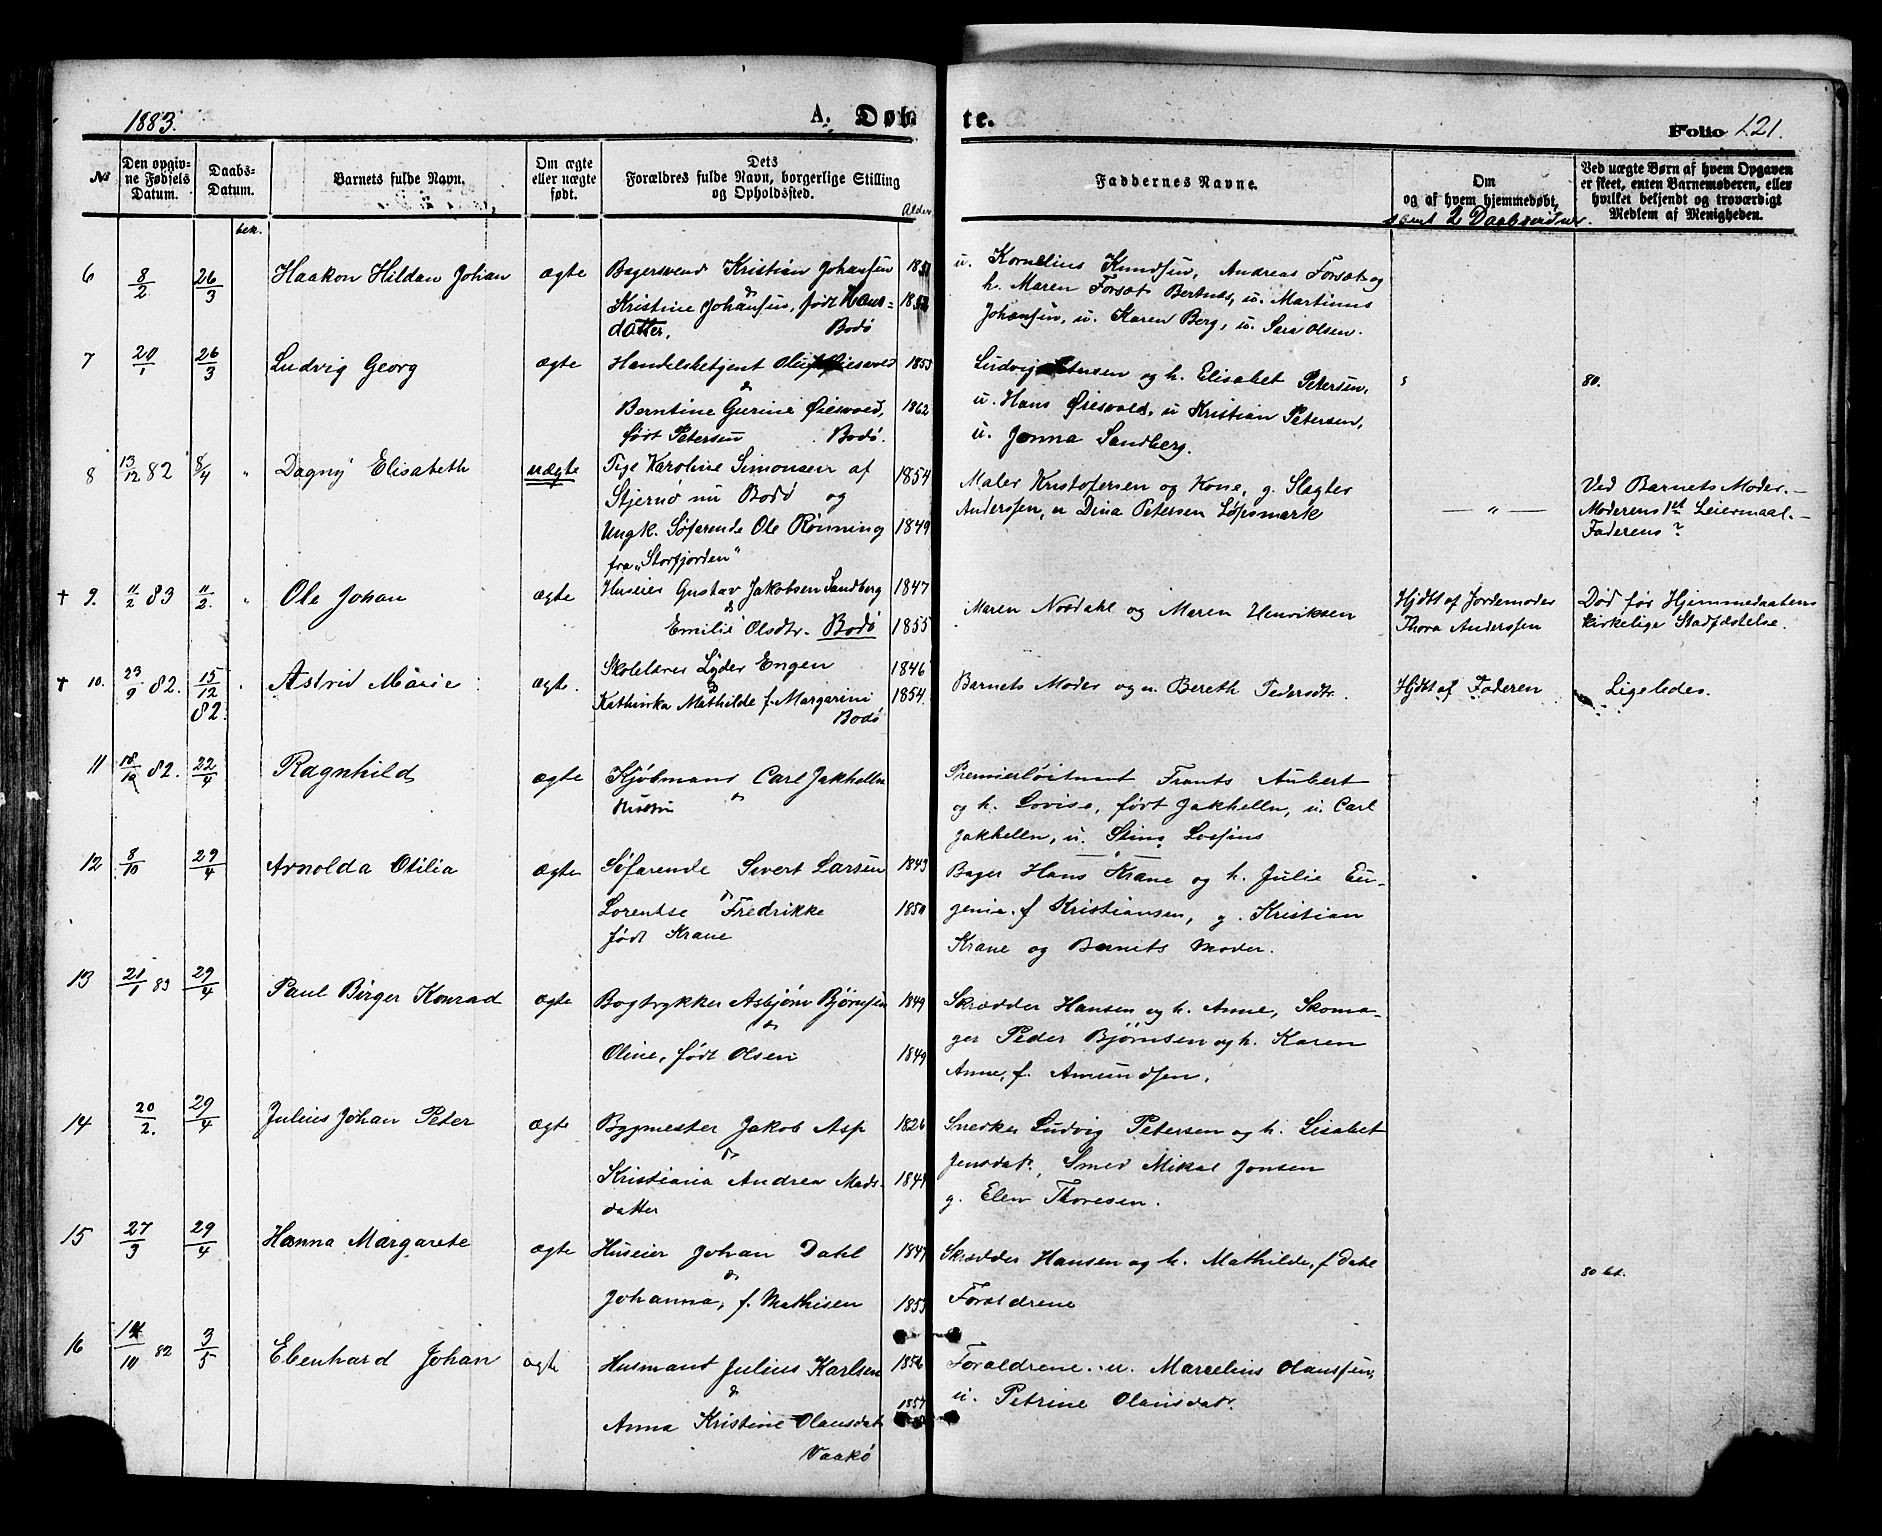 1883.
A. Døb
te.
Folio 121.
No
Den opgivne Fødsels Datum.
Daabs-Datum.
Barnets fulde Navn.
Om ægte eller uægte født.
Dets Forældres fulde Navn, borgerlige Stilling og Opholdssted.
Alder
Faddernes Navne.
Om og af hvem hjemmedøbt,
samt 2 Daabsvidner.
Ved uægte Børn af hvem Opgaven er skeet, enten Barnemoderen, eller hvilket bekjendt og troværdigt Medlem af Menigheden.
bek.
6 8/2 26/3 Haakon Hildan Johan ægte Bagersvend Kristian Johansen
& Kristine Johansen, født Hans-
datter, Bodø
u. Kornelius Knudsen, Andreas Forsæt og
h. Maren Forsæt Bertnes, u. Martinus
Johansen, u. Karen Berg, u. Sara Olsen.
7 20/1 26/3 Ludvig Georg ægte Handelsbetjent Oluf Øiesvold 1853
&
Berntine Gurine Øiesvold, 1862
født Petersen Bodø.
Ludvig Petersen og h. Elisabet Petersen,
u. Hans Øiesvold, u Kristian Petersen,
u. Jonna Sandberg.
80.
8 13/12 82 8/4 " Dagny Elisabeth uægte Pige Karoline Simonsen af 1854
Stjernø nu Bodø og
Ungk. Søfarende Ole Rønning 1849
fra "Storfjorden"
Maler Kristofersen og Kone, g. Slagter
Anderssen, u Dina Petersen Løpsmark
— " —
Ved Barnets Moder. —
Moderens 1st Leiermaal. —
Faderens?
† 9. 11/2 83 11/2. " Ole Johan ægte Huseier Gustav Jakobsen Sandberg 1847
&
Emilie Olsdtr. Bodø 1855
Maren Nordahl og Maren Henriksen
Hjdt af Jordemoder
Thora Anderssen
Død før Hjemmedaabens
kirkelige Stadfæstelse.
† 10. 23/9 82. 15/12 82. Astrid Marie ægte. Skolelærer Lyder Engen 1846
&
Kathinka Mathilde f. Margarini 1854
Bodø
Barnets Moder og u. Bereth Pedersdtr.
Hjdt af Faderen
Ligeledes.
11 18/12 82. 22/4 Ragnhild ægte Kjøbmand Carl Jakhelln
&
Hustru
Premierløitnant Frants Aubert
og h. Lovise, født Jakhelln, u. Carl
Jakhelln, u. Stina
12 8/10 29/4 Arnolda Otilia ægte Søfarende Sivert Larsen 1843
&
Lorentse Fredrikke 1850
født Krane
Bager Hans Krane og h. Julie Eu-
genia. f Kristiansen, g. Kristian
Krane og Barnets Moder.
13 21/1 83 29/4 Paul Birger Konrad ægte Bogtrykker Asbjørn Bjørnsen 1849
&
Oline, født Olsen 1849
Skrædder Hansen og h. Anne, Skoma-
ger Peder Bjørnsen og h. Karen
Anne, f. Amundsen.
14 20/2. 29/4 Julius Johan Peter ægte Bygmester Jakob Asp 1826
&
Kristiania Andrea Mads-
datter
Snedker Ludvig Petersen og h. Lisabet
Jensdatr., Smed Mikal Jonsen
g. Elen Thoresen.
15 27/3 29/4 Hanna Margarete ægte Huseier Johan Dahl 1847
&
Johanna, f. Mathisen 1853
Skrædder Hansen og h. Mathilde, f Dahl
Forældrene
80 bt.
16 14/10 82 3/5 Ebenhard Johan ægte Husmand Julius Karlsen 1856
&
Anna Kristine Olausdatr 1857
Vaakø
Forældrene. u. Marcelius Olaussen,
u. Petrine Olausdatr.